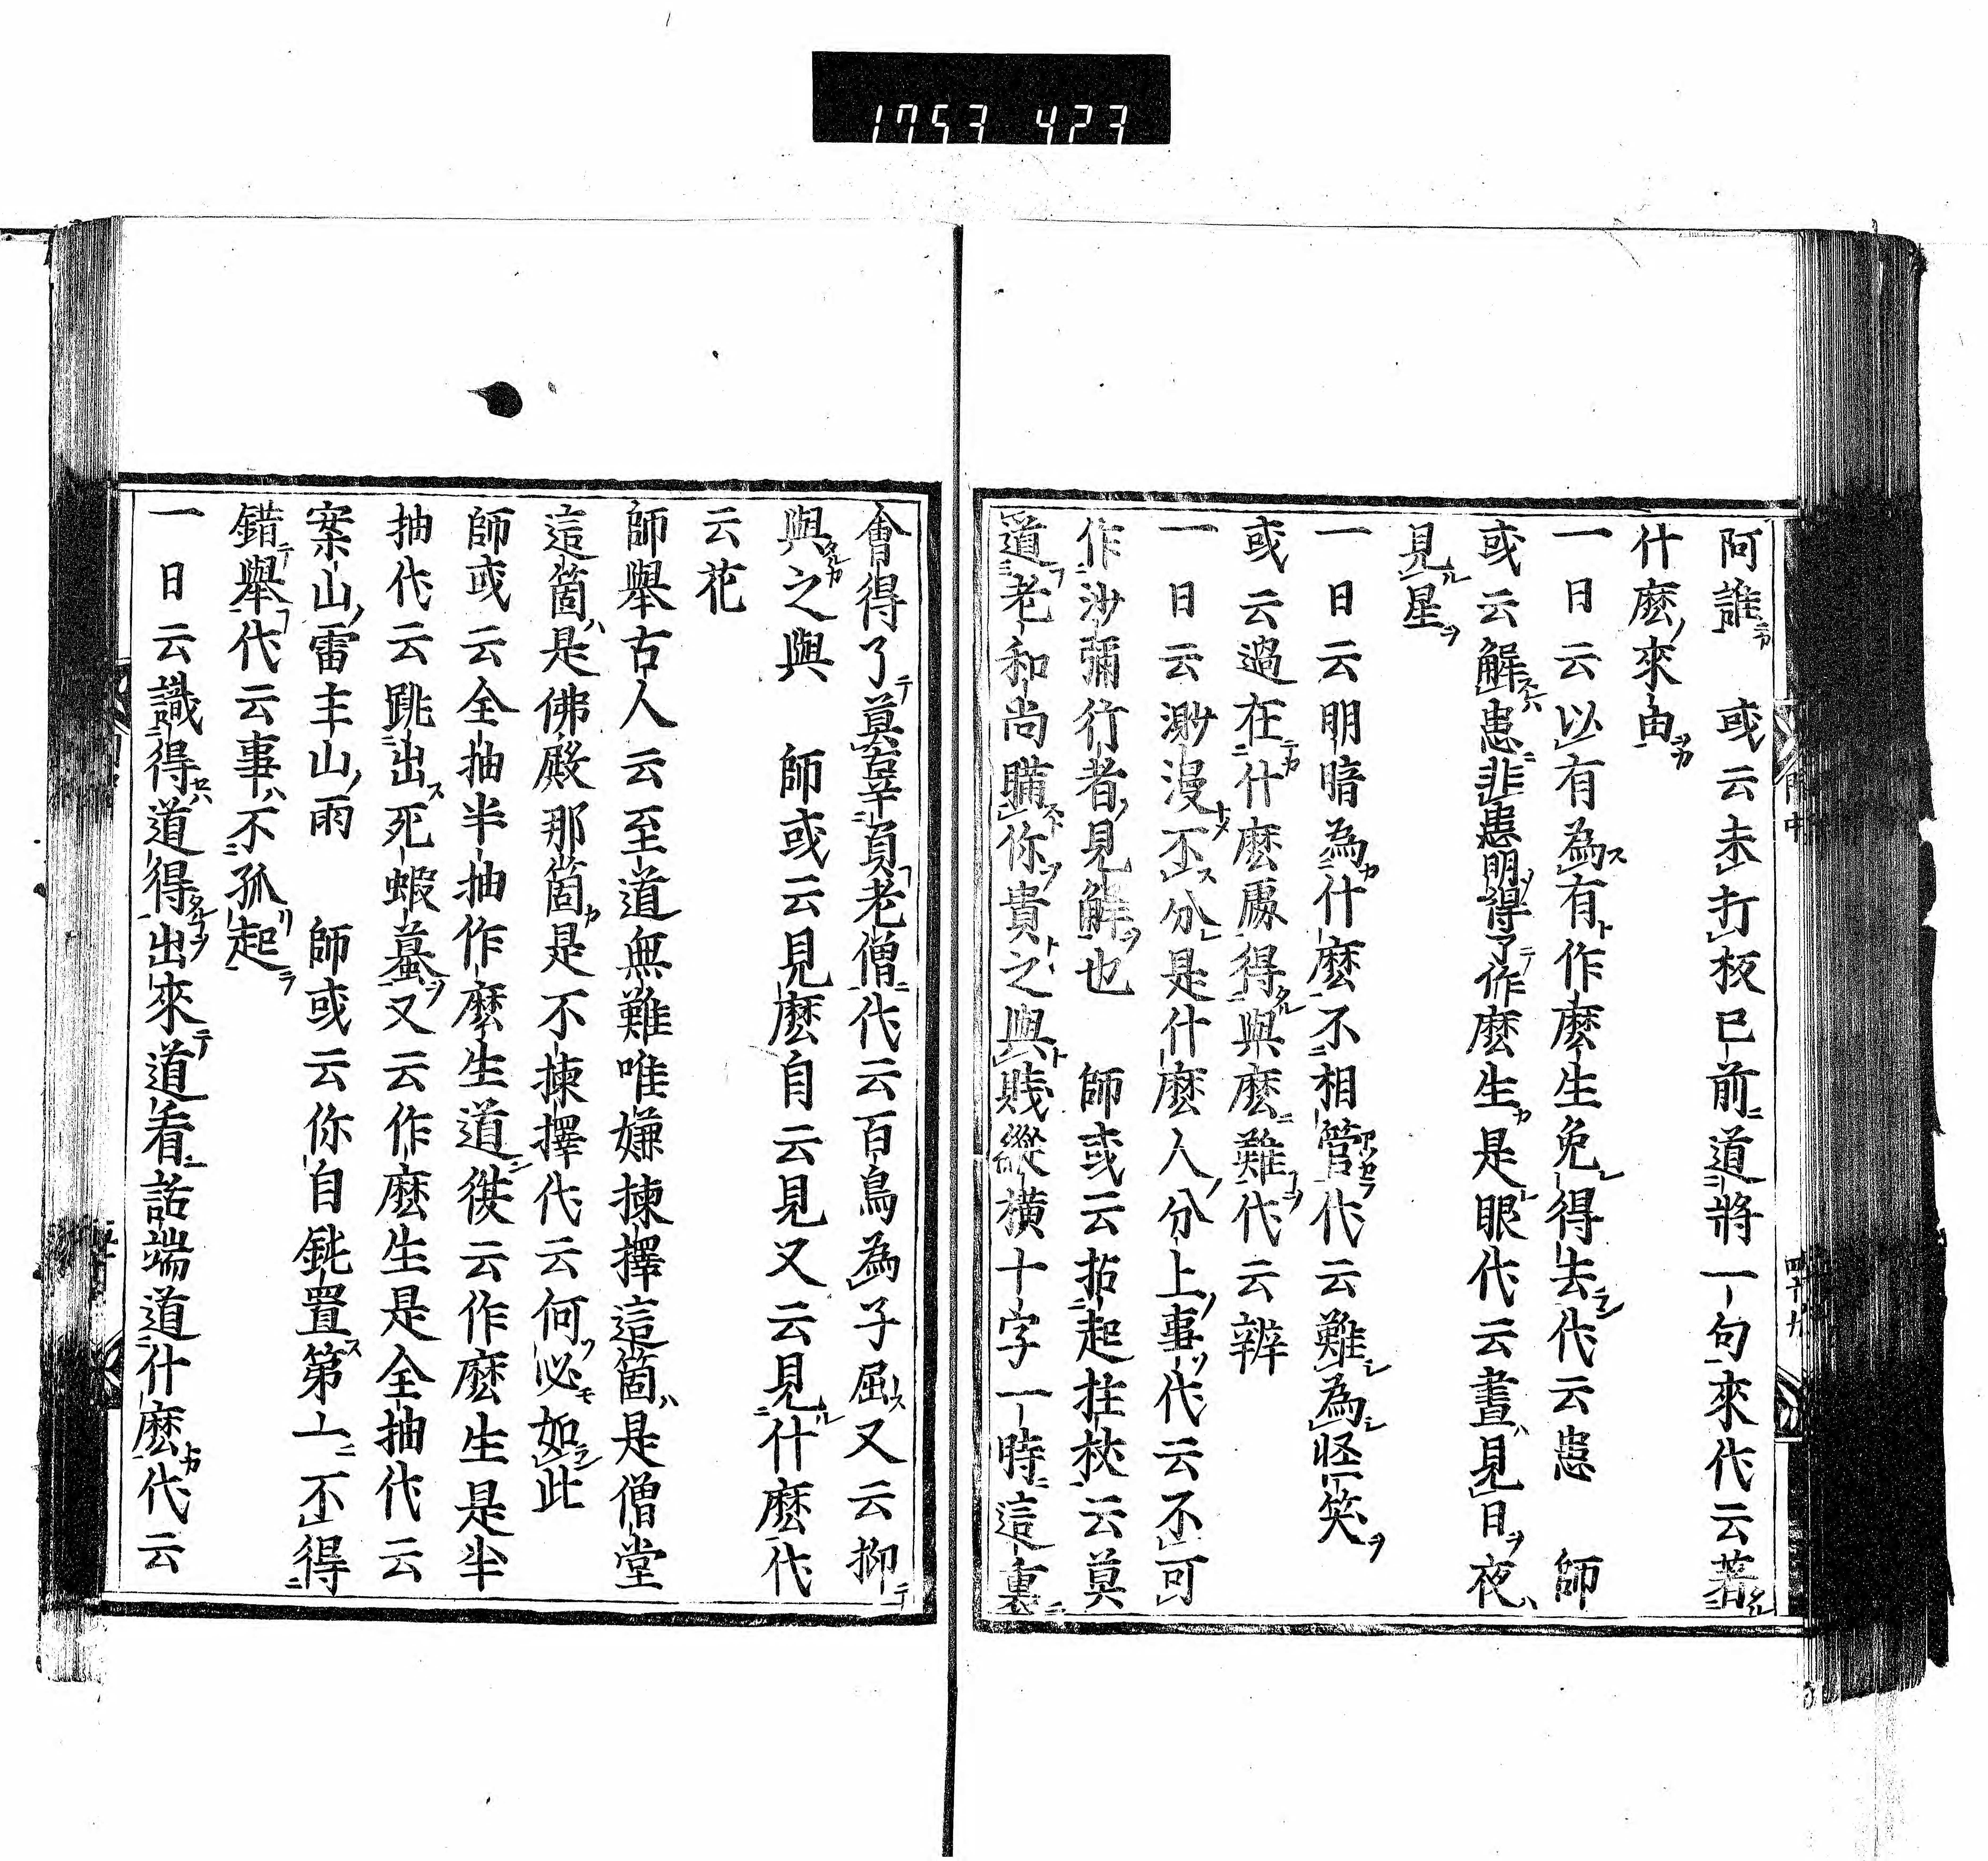 1753 423
阿誰　或云未打板已前道將一句來代云著
什麽來由
一日云以有為有作麽生免得去代云患　師
或云解患非患明得了作麽生是眼代云晝見日夜
見星
一日云明暗為什麽不相管代云難為怪笑
或云過在什麽處得與麽難代云辨
一日云渺漫不分是什麽人分上事代云不可
作沙彌行者見解也　師或云拈起拄杖云莫
道老和尚瞞你貴之與賤縱橫十字一時這裏
會得了莫辜負老僧代云百鳥為子屈又云抑
與之與　師或云見麽自云見又云見什麽代
云花
師舉古人云至道無難唯嫌揀擇這箇是僧堂
這箇是佛殿那箇是不揀擇代云何必如此
師或云全抽半抽作麽生道後云作麽生是半
抽代云跳出死蝦蟇又云作麽生是全抽代云
案山雷主山雨　師或云你自鈍置第一不得
錯舉代云事不孤起
一日云識得道得出來道看話端道什麽代云